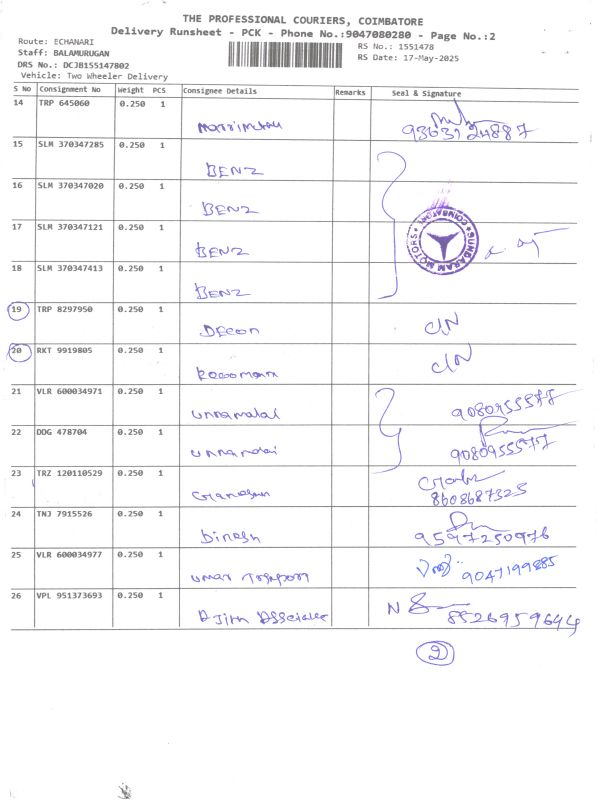 THE PROFESSIONAL COURIERS, COIMBATORE
Delivery Runsheet - PCK - Phone No.:9047080280 - Page No.:2
Route: ECHANARI
Staff: BALAMURUGAN
DRS No.: DCJB155147802
Vehicle: Two Wheeler Delivery
RS No.: 1551478
RS Date: 17-May-2025
S No Consignment No Weight PCS Consignee Details Remarks Seal & Signature
14 TRP 645060 0.250 1
9363124887
15 SLM 370347285 0.250 1
BENZ
16 SLM 370347020 0.250 1
BENZ
17 SLM 370347121 0.250 1
BENZ
SUNDARAM MOTORS * COIMBATORE *
18 SLM 370347413 0.250 1
BENZ
19 TRP 8297950 0.250 1
Decon C/N
20 RKT 9919805 0.250 1
C/N
21 VLR 600034971 0.250 1
Unnamalai 9080955577
22 DDG 478704 0.250 1
9080955577
23 TRZ 120110529 0.250 1
8608687325
24 TNJ 7915526 0.250 1
Dinesh 9597250976
25 VLR 600034977 0.250 1
9047199885
26 VPL 951373693 0.250 1
8526959644
2